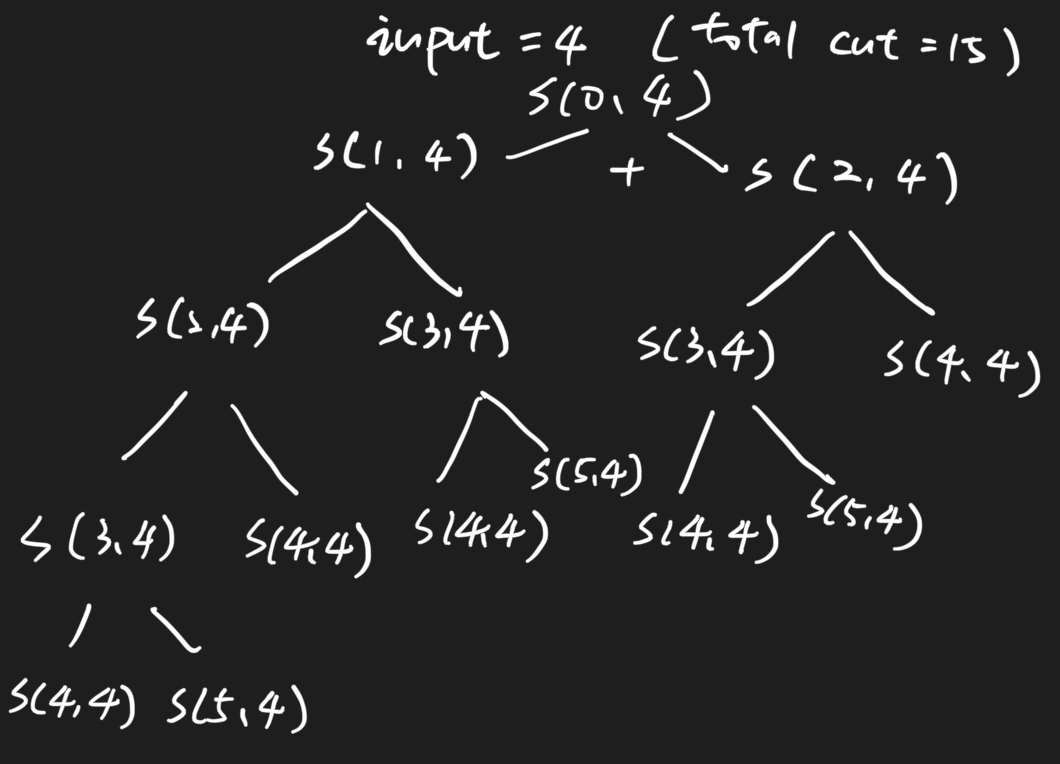 input = 4 (total cut = 15)
S(0, 4)
S(1, 4) + S(2, 4)
S(2,4) S(3,4) S(3,4) S(4, 4)
S(3,4) S(4,4) S(4,4) S(5,4) S(4,4) S(5,4)
S(4,4) S(5,4)